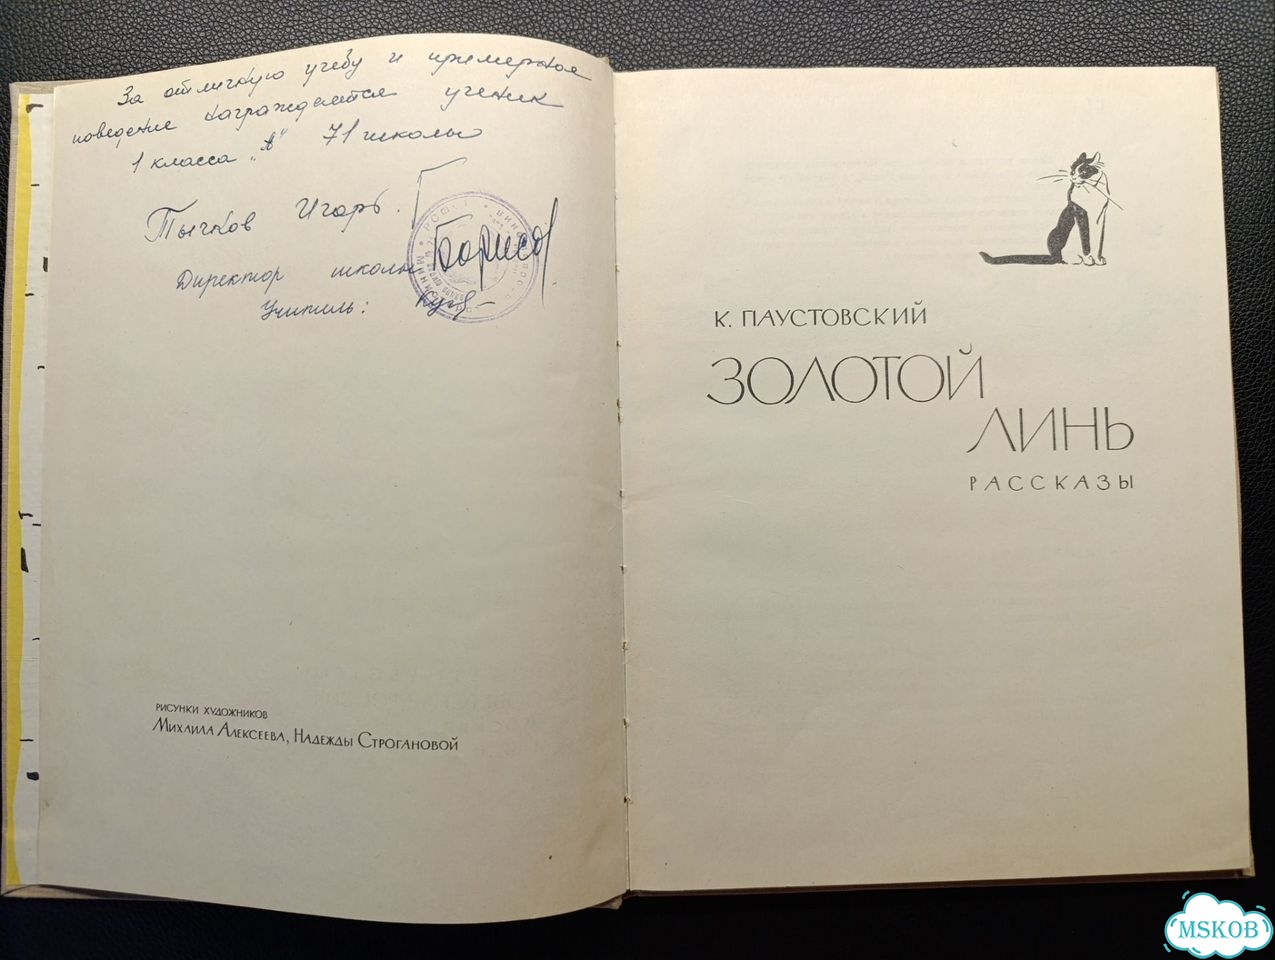 За отличную учебу и примерное
поведение награждается ученик
1 класса „А" 71 школы
Тычков Игорь.
Директор школы Борисо
Учитель:
РИСУНКИ ХУДОЖНИКОВ
МИХАИЛА АЛЕКСЕЕВА, НАДЕЖДЫ СТРОГАНОВОЙ
К. ПАУСТОВСКИЙ
ЗОЛОТОЙ
ЛИНЬ
РАССКАЗЫ
MSKOB